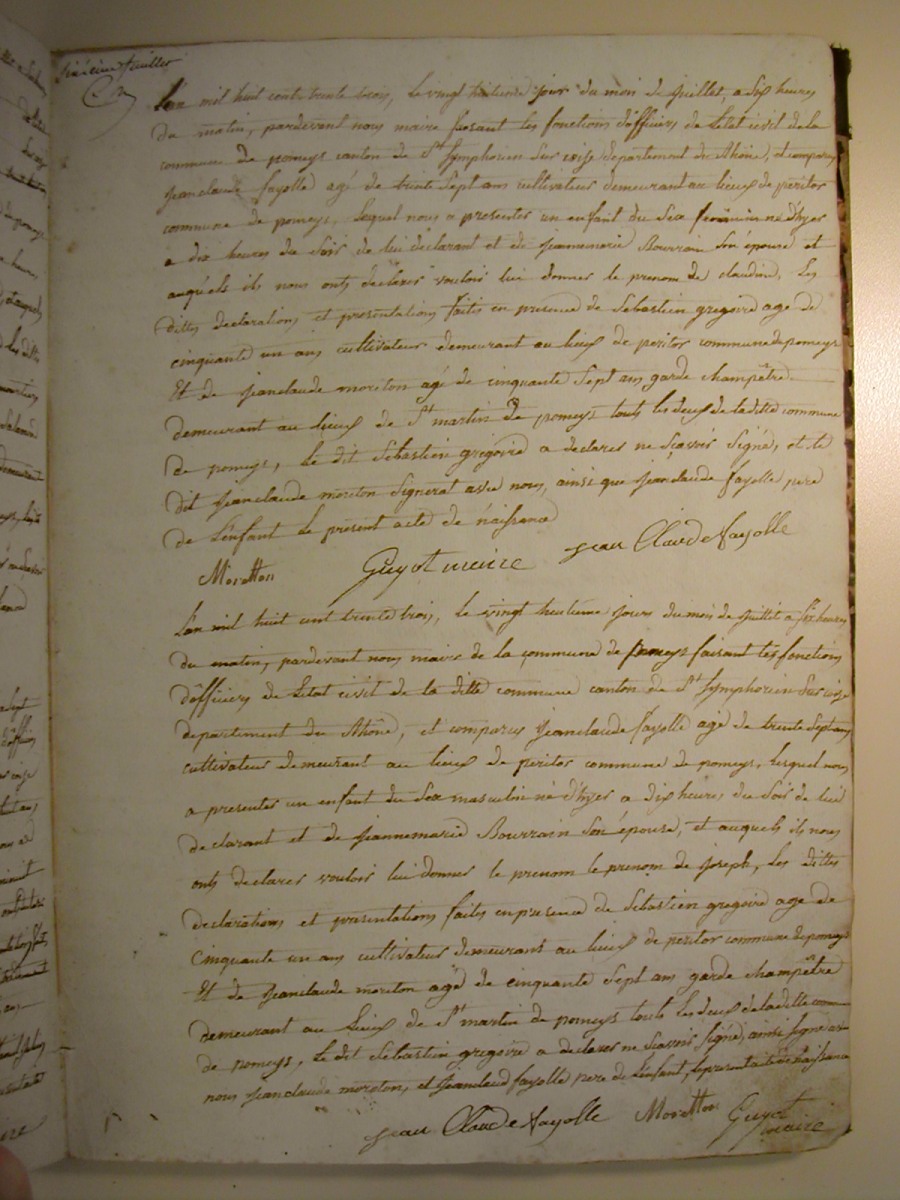 sixieme feuillet
L'an mil huit cent trente trois, le vingt huitieme jour du mois de juillet, a six heures
du matin, pardevant nous maire faisant les fonctions d'officiers de l'état civil de la
commune de pomeys canton de St Symphorien sur coise departement du Rhône, et comparu
jeanclaude fayolle agé de trente sept ans cultivateur demeurant au lieux de peritor
commune de pomeys, lequel nous a presenter un enfant du sex feminin né d'hyer
a dix heures du soir de lui déclarant et de jeannemarie Bourrain son épouse et
auquels ils nous onts déclarer vouloir lui donner le prenom de claudine, Les
dittes declarations et presentations faites en presence de Sébastien gregoire age de
cinquante un ans cultivateur demeurant au lieux de peritor commune de pomeys
Et de jeanclaude moreton agé de cinquante sept ans garde champêtre
demeurant au lieux de St martin de pomeys touts les deux de la ditte commune
de pomeys, Le dit Sébastien grégoire a declarer ne sçavoir signé, et le
dit jeanclaude moreton signerat avec nous, ainsi que jeanclaude fayolle pere
de L'enfant le present acte de naissance
Moretton Guyot maire jean Claude fayolle
L'an mil huit cent trente trois, le vingt huitieme jours du mois de juillet a six heures
du matin, pardevant nous maire de la commune de pomeys faisant les fonctions
d'officiers de L'etat civil de la ditte commune canton de St Symphorien sur coise
departement du Rhône, et comparu jeanclaude fayolle agé de trente sept ans
cultivateur demeurant au lieux de peritor commune de pomeys, lesquel nous
a presenter un enfant du sex masculin né d'hyer a dix heures du soir de lui
declarant et de jeannemarie Bourrain son épouse, et auquels ils nous
onts declarer vouloir lui donner le prenom le prenom de joseph, Les dittes
declarations et presentations faites en presence de Sébastien gregoire age de
cinquante un ans cultivateur demeurant au lieux de peritor commune de pomeys
Et de jeanclaude moreton agé de cinquante sept ans garde champêtre
demeurant au Lieux de St martin de pomeys touts Les deux de la ditte commune
de pomeys, Le dit Sébastien gregoire a declarer ne sçavoir signé, ainsi signé
nous jeanclaude moreton, et jeanclaud fayolle pere de l'enfant, le present acte de naissance
jean Claude fayolle Moretton Guyot
maire